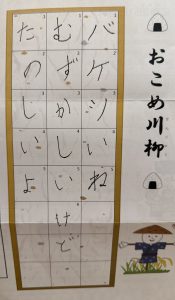 おこめ川柳
バケツいね
むずかしいけど
たのしいよ